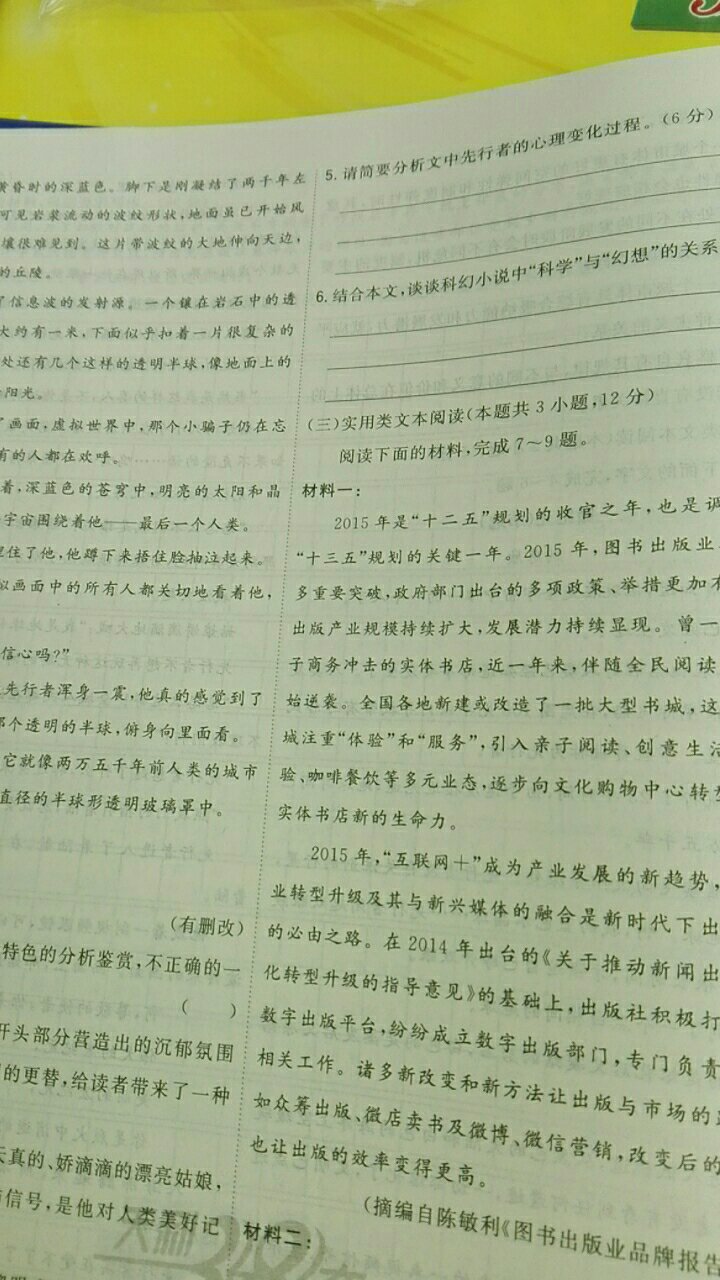 黄昏时的深蓝色。脚下是刚凝结了两千年左
可见岩浆流动的波纹形状,地面虽已开始风
壤很难见到。这片带波纹的大地伸向天边,
的丘陵。
了信息波的发射源。一个镶在岩石中的透
大约有一米,下面似乎扣着一片很复杂的
处还有几个这样的透明半球,像地面上的
阳光。
了画面,虚拟世界中,那个小骗子仍在忘
有的人都在欢呼。
着,深蓝色的苍穹中,明亮的太阳和晶
宇宙围绕着他——最后一个人类。
住了他,他蹲下来捂住脸抽泣起来。
拟画面中的所有人都关切地看着他,
信心吗?”
先行者浑身一震,他真的感觉到了
那个透明的半球,俯身向里面看。
它就像两万五千年前人类的城市
直径的半球形透明玻璃罩中。
(有删改)
特色的分析鉴赏,不正确的一
( )
开头部分营造出的沉郁氛围
的更替,给读者带来了一种
天真的、娇滴滴的漂亮姑娘,
信号,是他对人类美好记
5. 请简要分析文中先行者的心理变化过程。(6分)
6. 结合本文,谈谈科幻小说中“科学”与“幻想”的关系
(三)实用类文本阅读(本题共3小题,12分)
阅读下面的材料,完成7~9题。
材料一:
2015年是“十二五”规划的收官之年,也是调
“十三五”规划的关键一年。2015年,图书出版业
多重要突破,政府部门出台的多项政策、举措更加有
出版产业规模持续扩大,发展潜力持续显现。曾一
子商务冲击的实体书店,近一年来,伴随全民阅读
始逆袭。全国各地新建或改造了一批大型书城,这
城注重“体验”和“服务”,引入亲子阅读、创意生活
验、咖啡餐饮等多元业态,逐步向文化购物中心转型
实体书店新的生命力。
2015年,“互联网+”成为产业发展的新趋势,
业转型升级及其与新兴媒体的融合是新时代下出
的必由之路。在2014年出台的《关于推动新闻出
化转型升级的指导意见》的基础上,出版社积极打
数字出版平台,纷纷成立数字出版部门,专门负责
相关工作。诸多新改变和新方法让出版与市场的
如众筹出版、微店卖书及微博、微信营销,改变后的
也让出版的效率变得更高。
(摘编自陈敏利《图书出版业品牌报告
材料二: